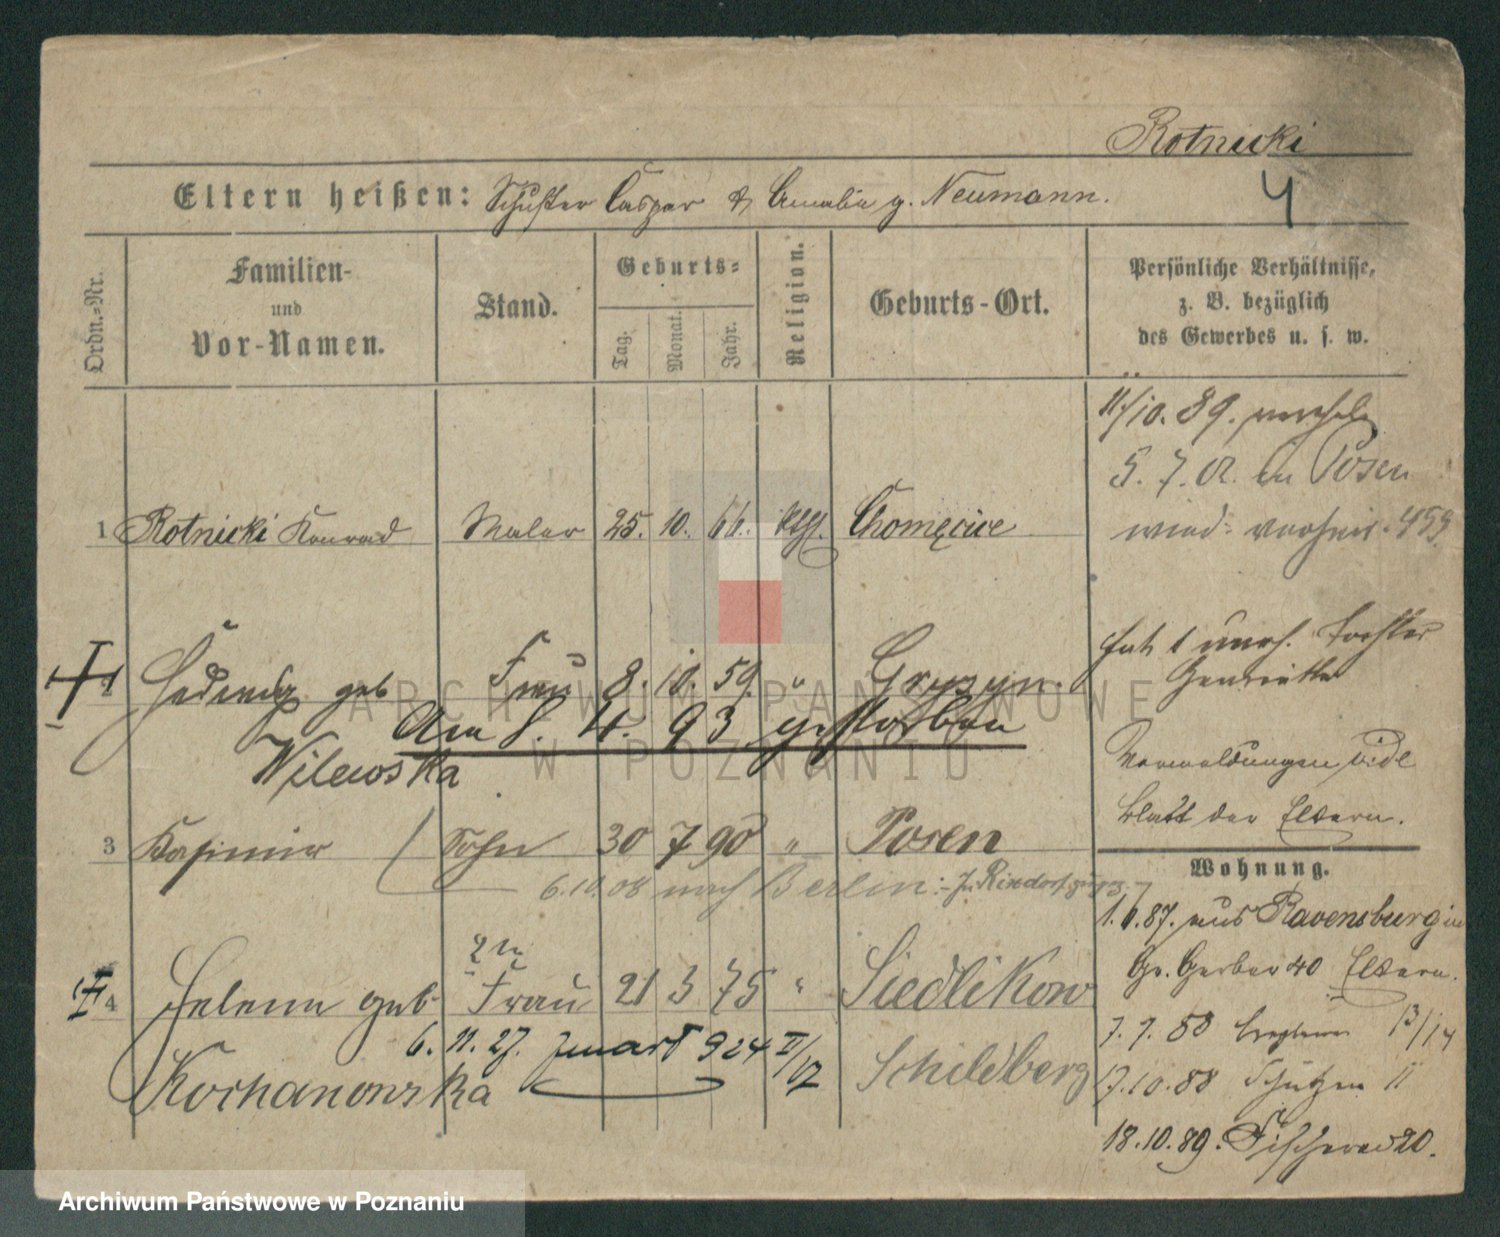 Rotnicki
4
Eltern heißen: Schuster Caspar & Amalie g. Neumann.
Ordn.-Nr.
Familien-
und
Vor-Namen.
Stand.
Geburts-
Tag.
Monat.
Jahr.
Religion.
Geburts-Ort.
Persönliche Verhältnisse,
z. B. bezüglich
des Gewerbes u. s. w.
11/10. 89. verehel.
5. 7. 02. in Posen
wied. verheir. 459.
1 Rotnicki Konrad Maler 25. 10. 66. kath. Chomęcice
2 Hedwig geb Frau 8. 10. 59. " Gryzyn.
Am 8. 4. 93 gestorben
Wilewska
hat 1 uneh. Tochter
Henriette
Vermeldungen vide
Blatt der Eltern.
3 Kasimir Sohn 30 7 90 " Posen
6.10.08 nach Berlin:
Wohnung.
1.6.87. aus Ravensburg in
Gr. Gerber 40 Eltern.
7. 7. 88 13/14
17.10.88 Schützen 11
18.10.89. Fischerei 20.
2te
4 Helena geb. Frau 21 3 75 " Siedlikow
6. 11. 27. 924 II/
Kochanowska
Schildberg
ARCHIWUM PAŃSTWOWE
W POZNANIU
Archiwum Państwowe w Poznaniu